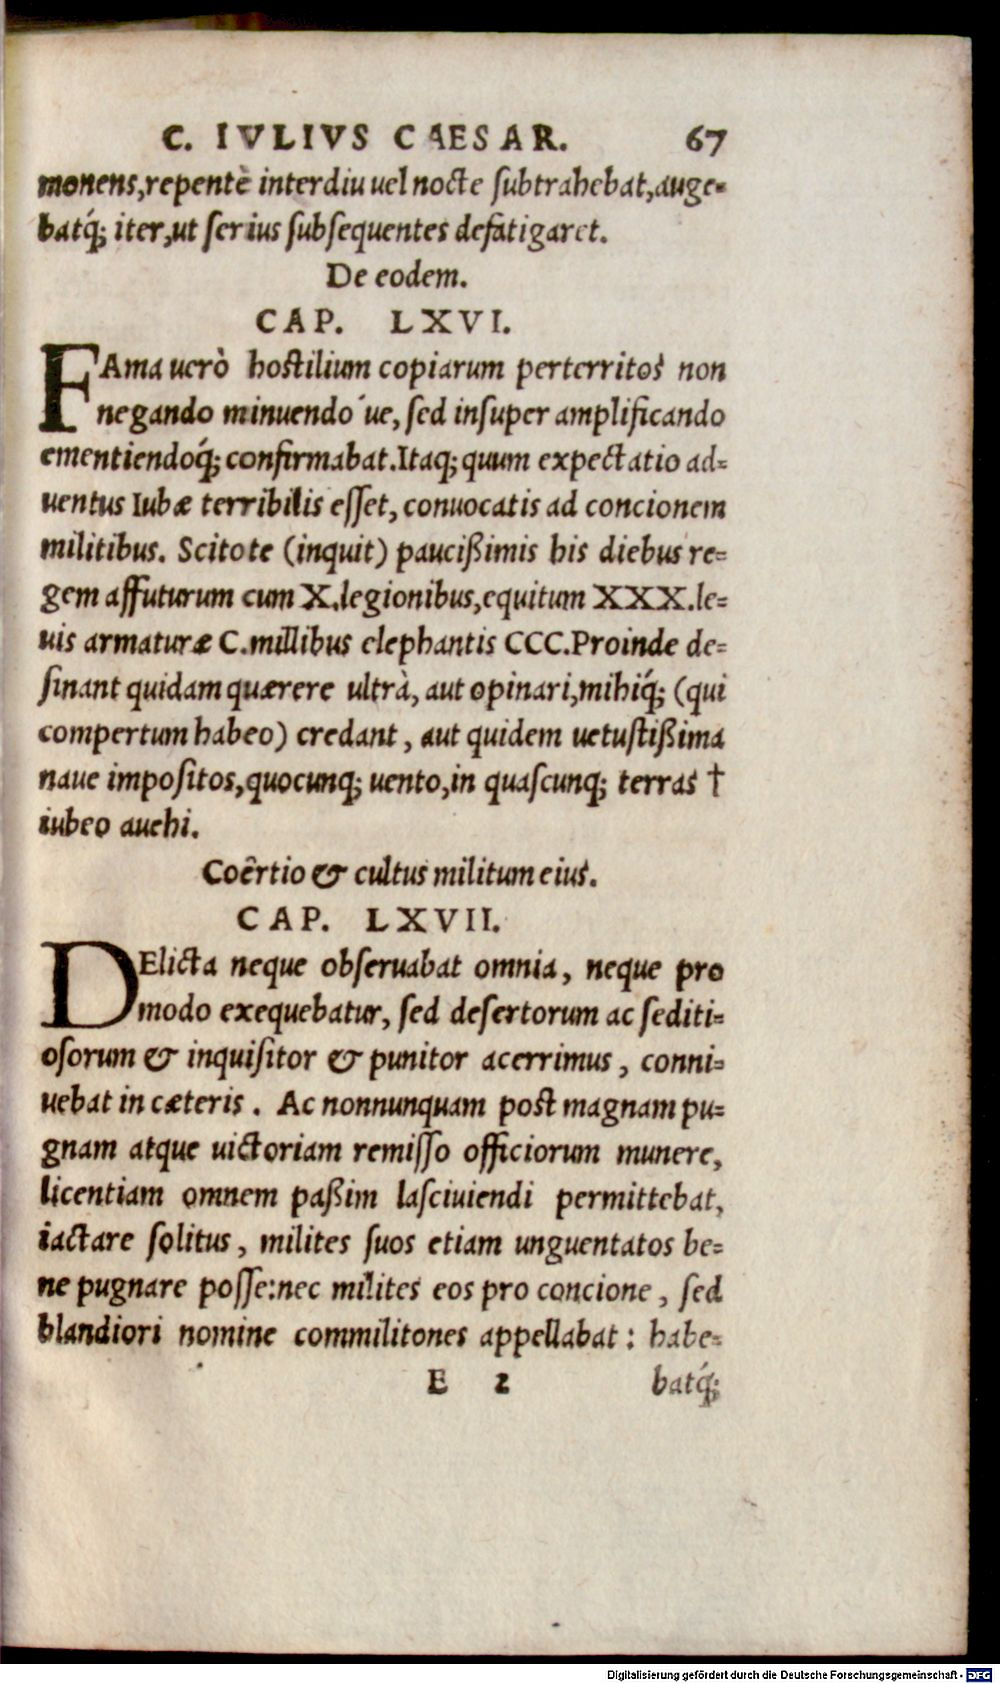 C. IVLIVS CAESAR. 67
monens,repentè interdiu uel nocte ſubtrahebat,auge-
batq́; iter,ut ſerius ſubſequentes defatigaret.
De eodem.
CAP. LXVI.
FAma uerò hostilium copiarum perterritos non
negando minuendo´ue, ſed inſuper amplificando
ementiendoq́; confirmabat.Itaq; quum expectatio ad-
uentus Iubæ terribilis eſſet, conuocatis ad concionem
militibus. Scitote (inquit) paucißimis his diebus re-
gem affuturum cum X.legionibus,equitum XXX.le-
uis armaturæ C.millibus elephantis CCC.Proinde de-
ſinant quidam quærere ultrà, aut opinari,mihiq́; (qui
compertum habeo) credant, aut quidem uetuſtißima
naue impoſitos,quocunq; uento,in quaſcunq; terras †
iubeo auehi.
Coërtio & cultus militum eius.
CAP. LXVII.
DElicta neque obſeruabat omnia, neque pro
modo exequebatur, ſed deſertorum ac ſediti-
oſorum & inquiſitor & punitor acerrimus, conni-
uebat in cæteris. Ac nonnunquam post magnam pu-
gnam atque uictoriam remiſſo officiorum munere,
licentiam omnem paßim laſciuiendi permittebat,
iactare ſolitus, milites ſuos etiam unguentatos be-
ne pugnare poſſe:nec milites eos pro concione, ſed
blandiori nomine commilitones appellabat: habe-
E 2 batq́;
Digitalisierung gefördert durch die Deutsche Forschungsgemeinschaft - DFG